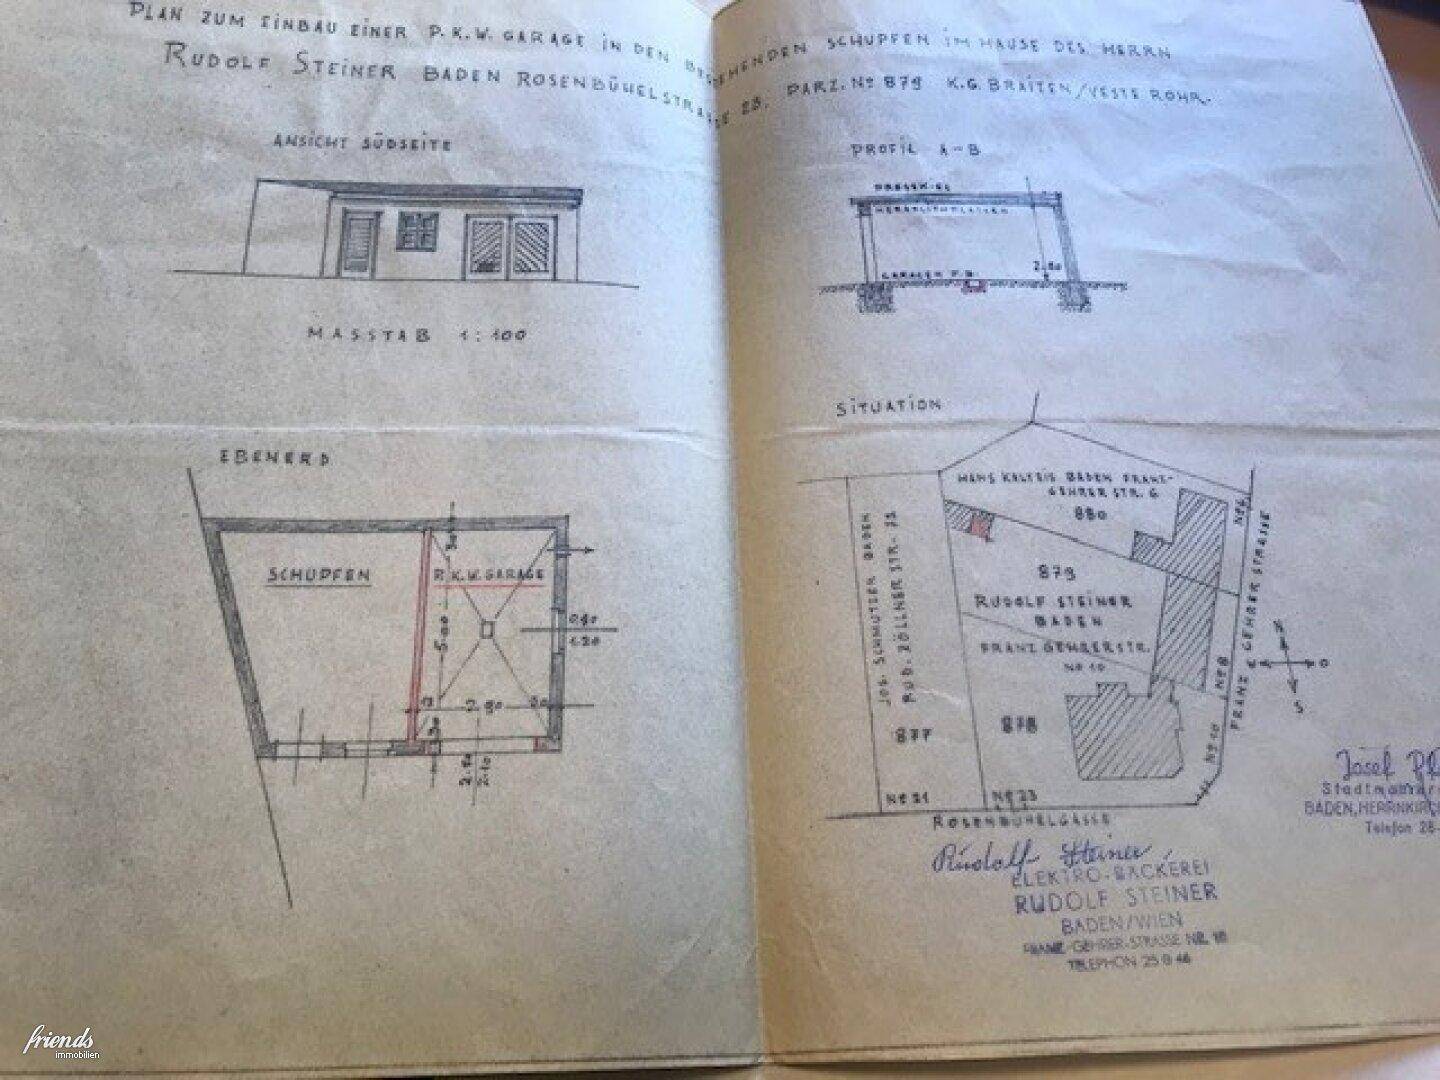 PLAN ZUM EINBAU EINER P.K.W. GARAGE IN DEN BESTEHENDEN SCHUPFEN IM HAUSE DES HERRN
RUDOLF STEINER BADEN ROSENBÜHELSTRASSE 23. PARZ. No 879 K.G. BRAITEN/VESTE ROHR.
ANSICHT SÜDSEITE
MASSTAB 1:100
PROFIL A-B
HERAKLITHPLATTEN
GARAGEN F.B.
2.80
EBENERD
SCHUPFEN
P.K.W. GARAGE
5.00
0.80
1.20
2.90
2.10
SITUATION
HANS KALTEIS BADEN FRANZ-
GEHRER STR. 6
880
JOS. SCHMUTZER BADEN
RUD. ZÖLLNER STR.
877
No 21
879
RUDOLF STEINER
BADEN
FRANZ GEHRERSTR.
No 10
878
No 23
No 6
No 8
No 10
FRANZ GEHRER STRASSE
O
S
ROSENBÜHELGASSE
Rudolf Steiner
ELEKTRO-BÄCKEREI
RUDOLF STEINER
BADEN/WIEN
FRANZ-GEHRER-STRASSE NR. 10
TELEPHON 25 8 46
Josef
Stadtmaurer
BADEN, HERRNKIRCH
Telefon 28-
friends
immobilien